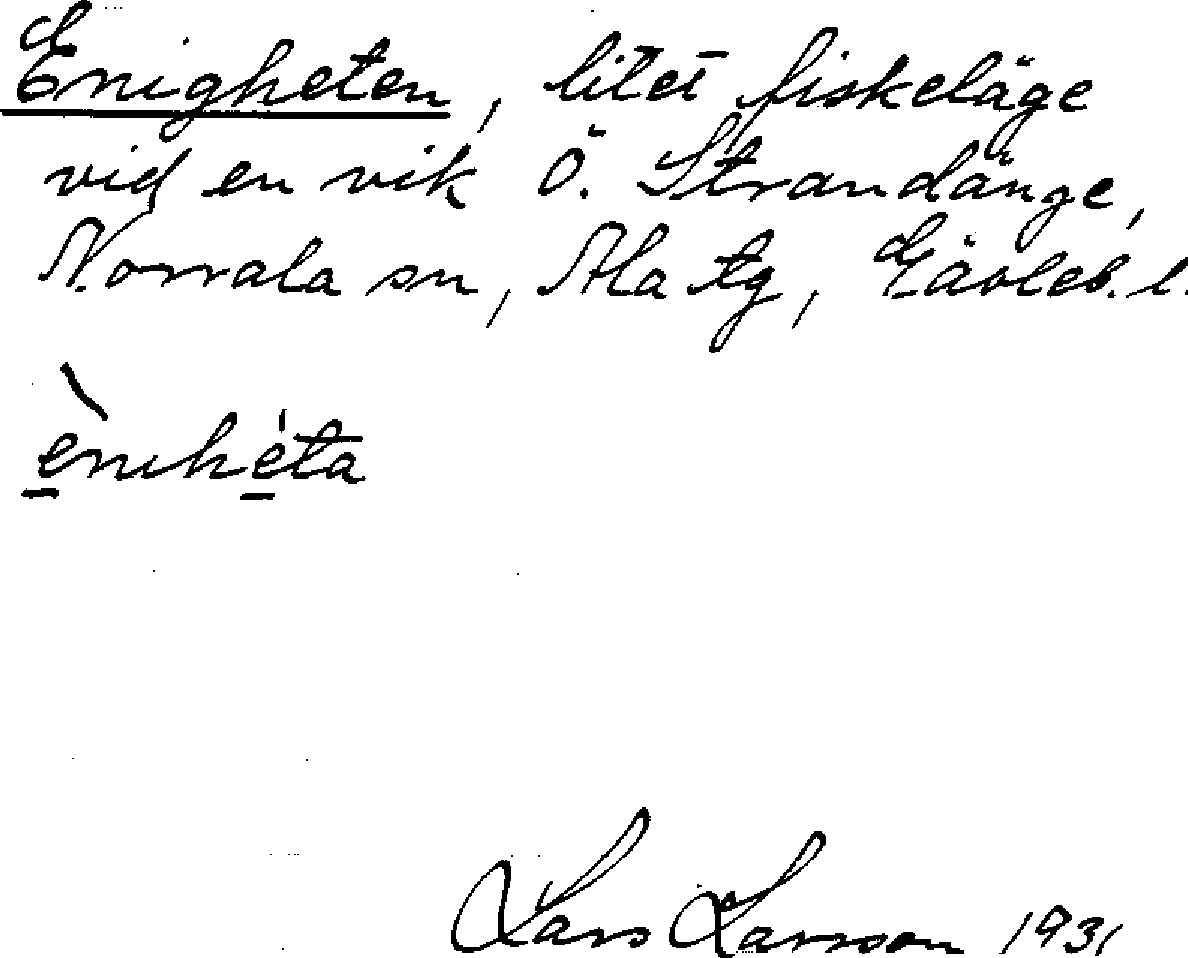 Enigheten, litet fiskeläge
vid en vik Ö. Strandänge,
Norrala sn, Ala tg, Gävleb. l.
è̱nıhé̱ta
Lars Larsson 1931